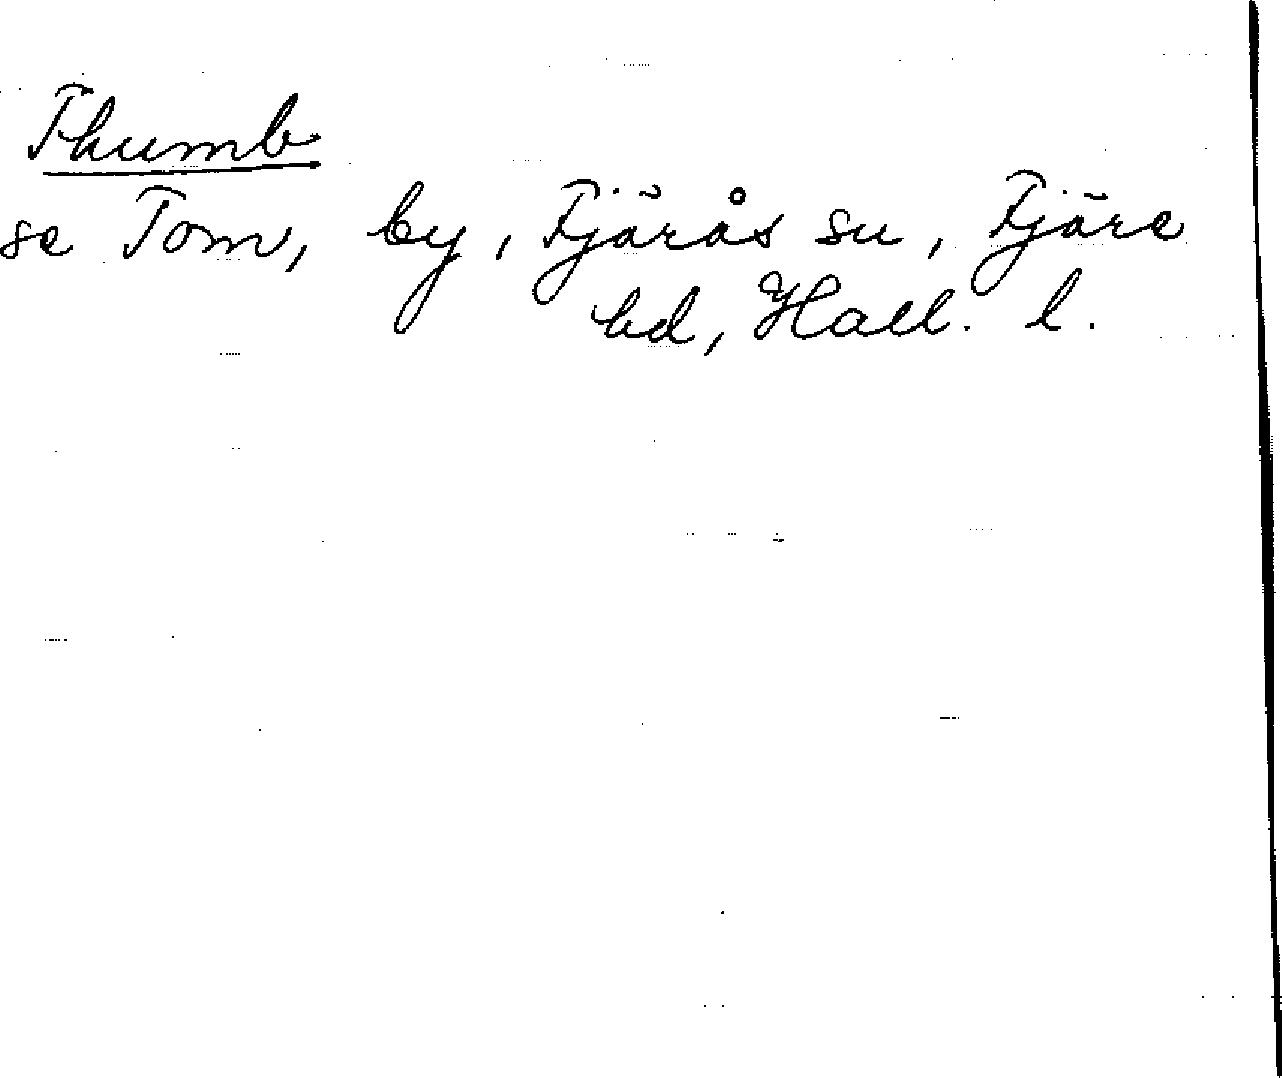 Thumb
se Tom, by, Fjärås sn, Fjäre
hd, Hall. l.